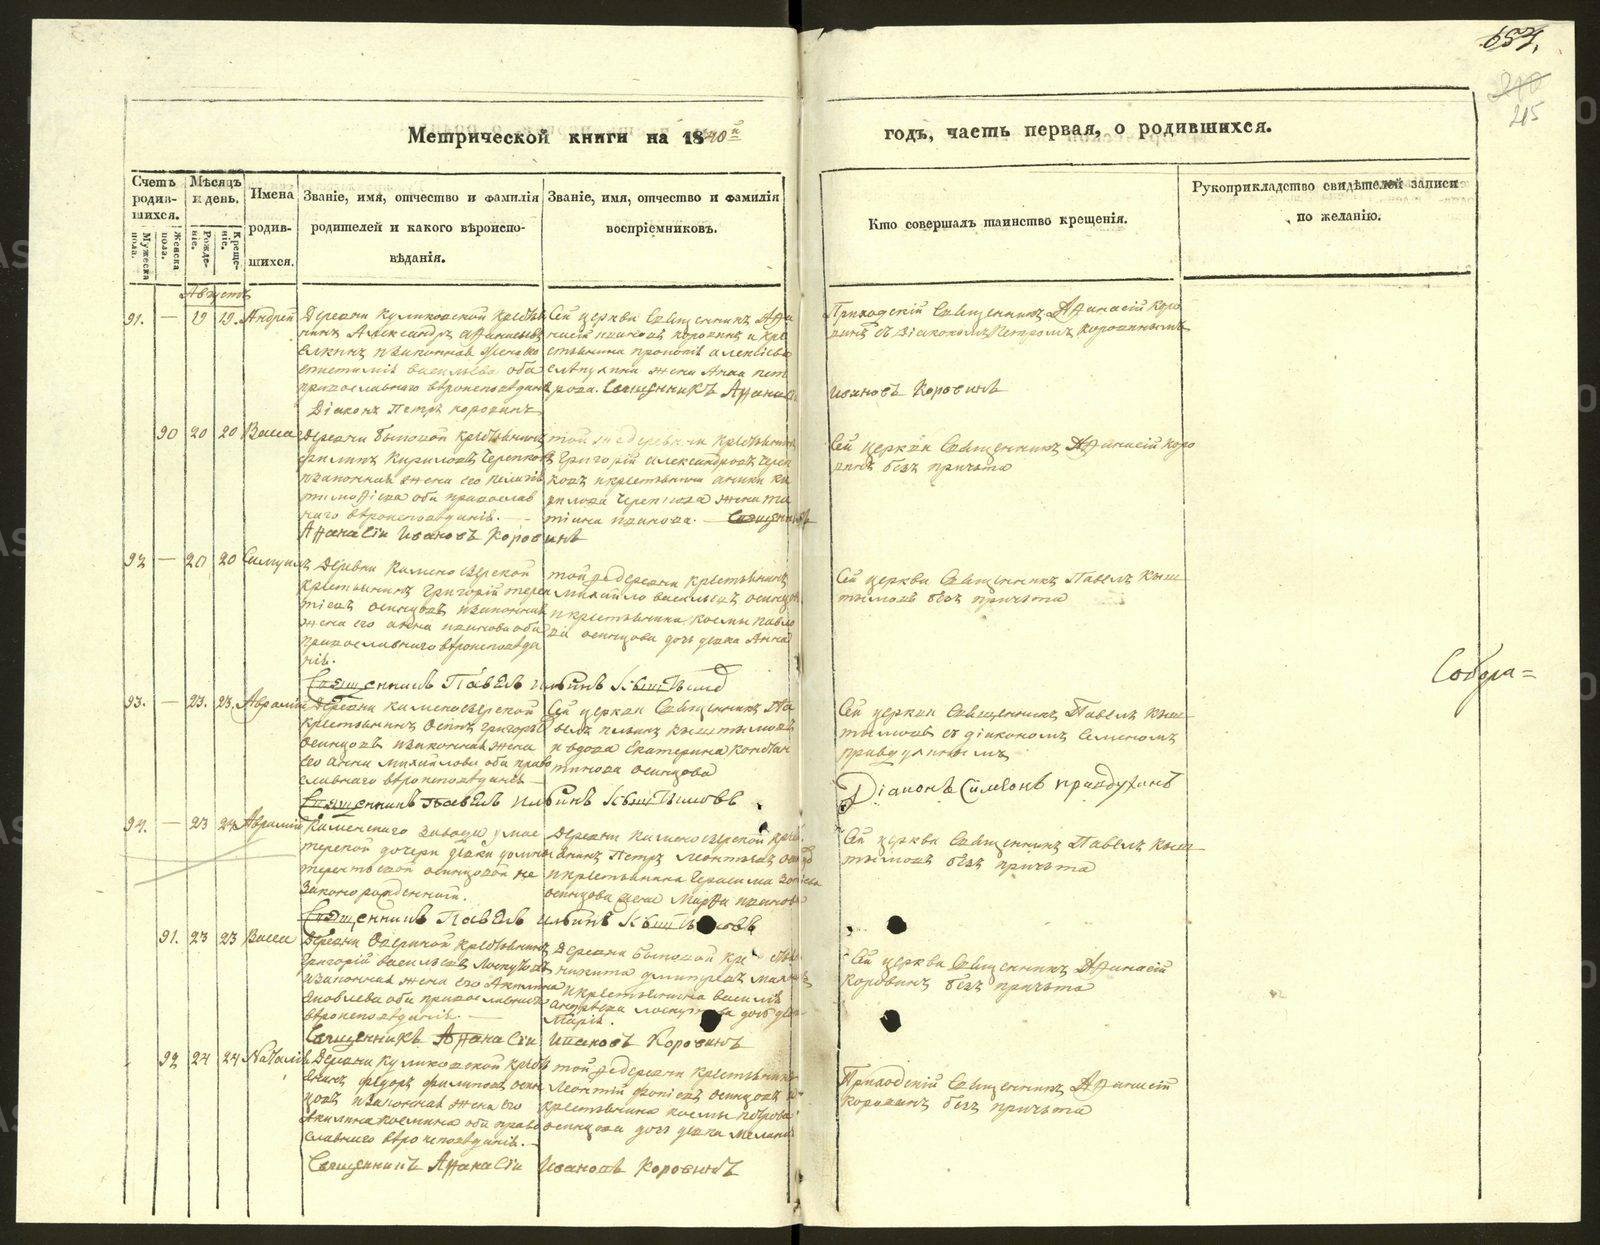 Метрической книги на 1840й
годъ, часть первая, о родившихся.
215
Счетъ родившихся.
Мужеска пола.
Женска пола.
Мѣсяцъ и день.
Рожденіе.
Крещеніе.
Имена родившихся.
Званіе, имя, отчество и фамилія
родителей и какого вѣроиспо-
вѣданія.
Званіе, имя, отчество и фамилія
воспріемниковъ.
Кто совершалъ таинство крещенія.
Рукоприкладство свидѣтелей записи
по желанію.
Августъ
91. — 19 19. Андрей
Деревни Куликовской кресть
янинъ Александръ
законная жена
Васильева оба
православнаго вѣроисповѣданія
Діаконъ Петръ Коровинъ
Сей церкви Священникъ Афа
насій Ивановъ Коровинъ и кре
стьянина
жена Анна Пет
рова. Священникъ Афанасій
Приходскій Священникъ Афанасій Коро
винъ съ Діакономъ Петромъ Коровинымъ
Ивановъ Коровинъ
90 20 20 Васса
Деревни крестьянинъ
Филипъ Кириловъ
законная жена его
оба православ
наго вѣроисповѣданія. —
Афанасій Ивановъ Коровинъ
той же деревни крестьянинъ
Григорій Александровъ
и крестьянина
рилова жена Та
тіана Иванова. — Священникъ
Сей церкви Священникъ Афанасій Коро
винъ безъ причта
92 — 20 20 Самуилъ
Деревни Каменоозерской
крестьянинъ Григорій Терен
тіевъ Осинцовъ и законная
жена его Анна Иванова оба
православнаго вѣроисповѣда
нія.
Священникъ Павелъ Ильинъ Кыштымовъ
той же деревни крестьянинъ
Михайло Васильевъ Осинцовъ
и крестьянина Космы Павло
ва Осинцова дочь девка Анна
Сей церкви Священникъ Павелъ Кыш
тымовъ безъ причта
93. — 23. 23. Аврамій
Деревни Каменоозерской
крестьянинъ Осипъ Григорьевъ
Осинцовъ и законная жена
его Анна Михайлова оба право
славнаго вѣроисповѣданія —
Священникъ Павелъ Ильинъ Кыштымовъ
Сей церкви Священникъ Па
велъ Ильинъ Кыштымовъ
и вдова Екатерина Констан
тинова Осинцова
Сей церкви Священникъ Павелъ Кыш
тымовъ съ діакономъ Симеономъ
Правдухинымъ
Діаконъ Симеонъ Правдухинъ
Собора=
94. — 23 24 Аврамій
Каменскаго завода умас
терской дочери девки Домны
Терентьевой Осинцовой не
законорожденный.
Священникъ Павелъ Ильинъ Кыштымовъ
Деревни Каменоозерской крест
янинъ Петръ Леонтьевъ
и крестьянина Герасима
Осинцова жена Марфа Иванова
Сей церкви Священникъ Павелъ Кыш
тымовъ безъ причта
91. 23 23 Васса
Деревни крестьянинъ
Григорій Васильевъ Лоскутовъ
и законная жена его Акилина
Яковлева оба православнаго
вѣроисповѣданія. —
Священникъ Афанасій Ивановъ Коровинъ
Деревни
Никита Дмитріевъ
и крестьянина Василія
Андреева Лоскутова дочь девка
Марія.
Сей церкви Священникъ Афанасій
Коровинъ безъ причта
92 24 24 Наталія
Деревни Куликовской кресть
янинъ Федоръ Филиповъ Осин
цовъ и законная жена его
Акилина Космина оба право
славнаго вѣроисповѣданія. —
Священникъ Афанасій Ивановъ Коровинъ
той же деревни крестьянинъ
Леонтій Осинцовъ и
крестьянина Космы Петрова
Осинцова дочь девка Меланія
Приходскій Священникъ Афанасій
Коровинъ безъ причта